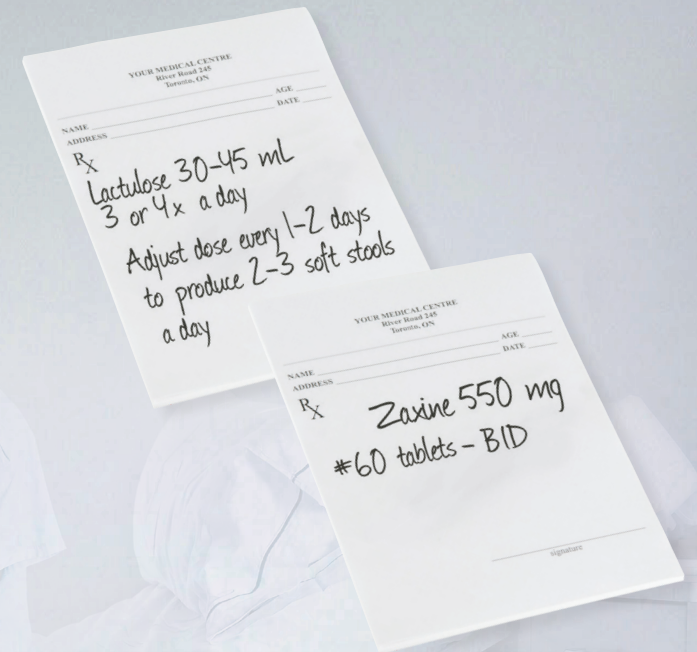 YOUR MEDICAL CENTRE
River Road 245
Toronto, ON
NAME AGE
ADDRESS DATE
Rx
Lactulose 30-45 mL
3 or 4x a day
Adjust dose every 1-2 days
to produce 2-3 soft stools
a day
YOUR MEDICAL CENTRE
River Road 245
Toronto, ON
NAME AGE
ADDRESS DATE
Rx
Zaxine 550 mg
#60 tablets - BID
signature